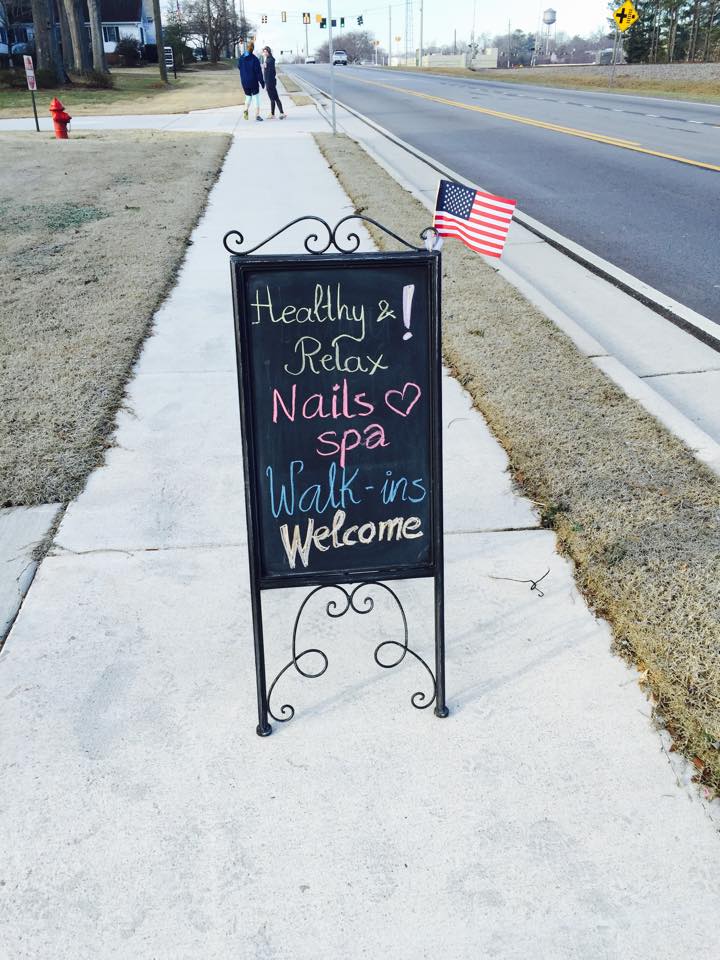 Healthy & !
Relax
Nails ♡
spa
Walk-ins
Welcome